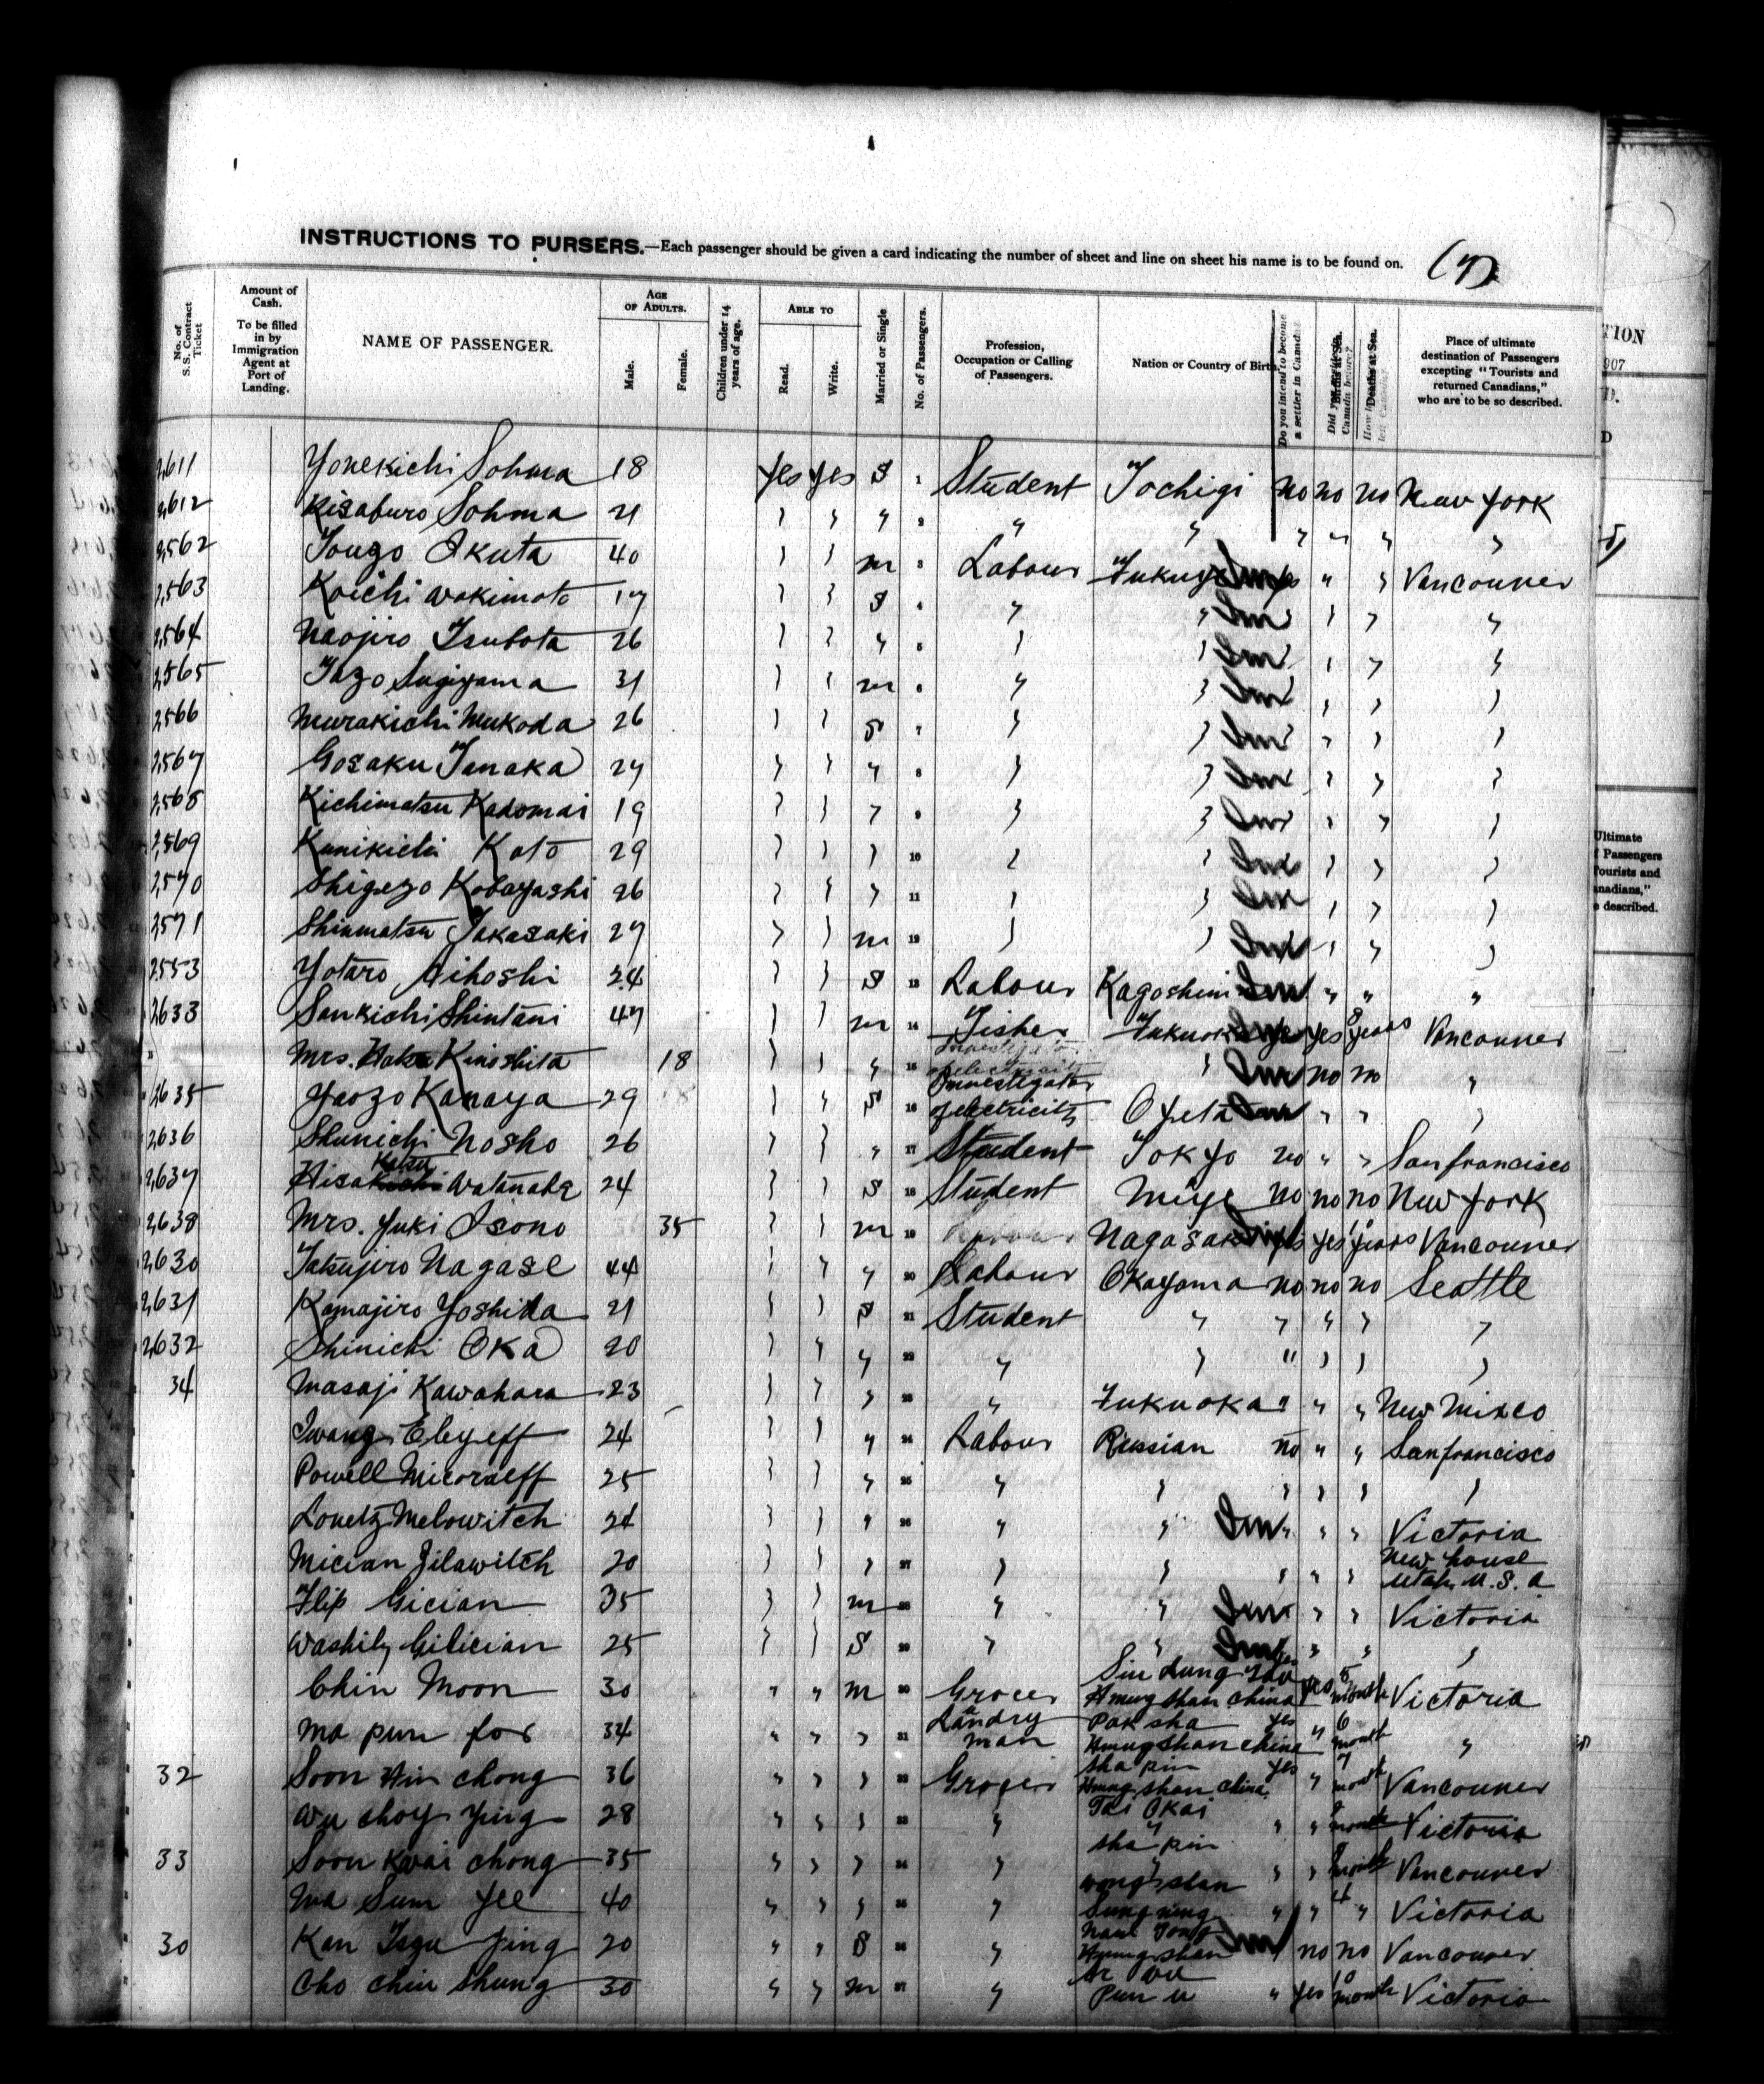 INSTRUCTIONS TO PURSERS.—Each passenger should be given a card indicating the number of sheet and line on sheet his name is to be found on. (7)
No. of S. S. Contract Ticket
Amount of Cash. To be filled in by Immigration Agent at Port of Landing.
NAME OF PASSENGER.
AGE OF ADULTS.
Male.
Female.
Children under 14 years of age.
ABLE TO
Read.
Write.
Married or Single
No. of Passengers.
Profession, Occupation or Calling of Passengers.
Nation or Country of Birth.
Do you intend to become a settler in Canada
Births at Sea.
Deaths at Sea.
Place of ultimate destination of Passengers excepting "Tourists and returned Canadians," who are to be so described.
TION
907
D
Ultimate
f Passengers
Tourists and
anadians,"
e described.
2,611 Yonekichi Sohma 18 Yes Yes S 1 Student Tochigi no no no New York
2,612 Kisaburo Sohma 21 " " " 2 " " " " " "
2,562 Touzo Ikuta 40 " " m 3 Labour " " Vancouver
2,563 Koichi Wakimoto 17 " " S 4 " " Im " " "
2,564 Naojiro Tsubota 26 " " " 5 " " Im " " "
2,565 Tazo Sugiyama 31 " " m 6 " " Im " " "
2,566 Murakichi Mukoda 26 " " S 7 " " Im " " "
2,567 Gosaku Tanaka 27 " " " 8 " " Im " " "
2,568 Kichimatsu Kadomai 19 " " " 9 " " Im " " "
2,569 Kunikichi Kato 29 " " " 10 " " Im " " "
2,570 Shigezo Kobayashi 26 " " " 11 " " Im " " "
2,571 Shinmatsu Takasaki 27 " " m 12 " " Im " " "
2,553 Yotaro Aihoshi 24 " " S 13 Labour Kagoshim Im " " "
2,633 Sankichi Shintani 47 " " m 14 Fisher Fukuoka yes 8 years Vancouver
Mrs. Kinoshita 18 " " " 15 " Im no no "
2,635 Yaozo Kanaya 29 " " S 16 Investigator of electricity Oyeta Im " " "
2,636 Shunichi Nosho 26 " " " 17 Student Tokyo no " " Sanfrancisco
2,637 Hisakichi Katsu Watanabe 24 " " S 18 Student Miye no no no New York
2,638 Mrs. Yuki Isono 35 " " m 19 Nagasaki yes years Vancouver
2,630 Tatsujiro Nagase 44 " " " 20 Labour Okayama no no no Seattle
2,631 Kamajiro Yoshida 21 " " S 21 Student " " " " "
2,632 Shinichi Oka 20 " " " 22 " " " " " "
34 Masaji Kawahara 23 " " " 23 " Fukuoka " " " New Mixco
Iwang Elyeff 24 " " " 24 Labour Russian no " " Sanfrancisco
Powell Micoraeff 25 " " " 25 " " " " " "
Louetz Melowitch 24 " " " 26 " " Im " " " Victoria
Mician Jilawitch 20 " " " 27 " " " " " New house Utah, U. S. A
Flip Gician 35 " " m 28 " " Im " " Victoria
Washily Gilician 25 " " S 29 " " Im " " "
Chin Moon 30 " " m 30 Grocer Hmung Shan China yes 5 month Victoria
Ma pun fox 34 " " " 31 Landry man Pak sha Hmung Shan China yes " 6 month "
32 Soon Hin Chong 36 " " " 32 Grocer sha pin Hmung Shan China yes " 7 month Vancouver
Wu Choy Ying 28 " " " 33 " Tai Okai " " " month Victoria
33 Soon Kwai Chong 35 " " " 34 " sha pin wong shan " " month Vancouver
Ma Sum Yee 40 " " " 35 " Sung ning " " 4 " Victoria
30 Kan Tszu Jing 20 " " S 36 " Hmung shan Im no no Vancouver
Cho Chin Shung 30 " " m 37 " Pun u " yes 10 month Victoria